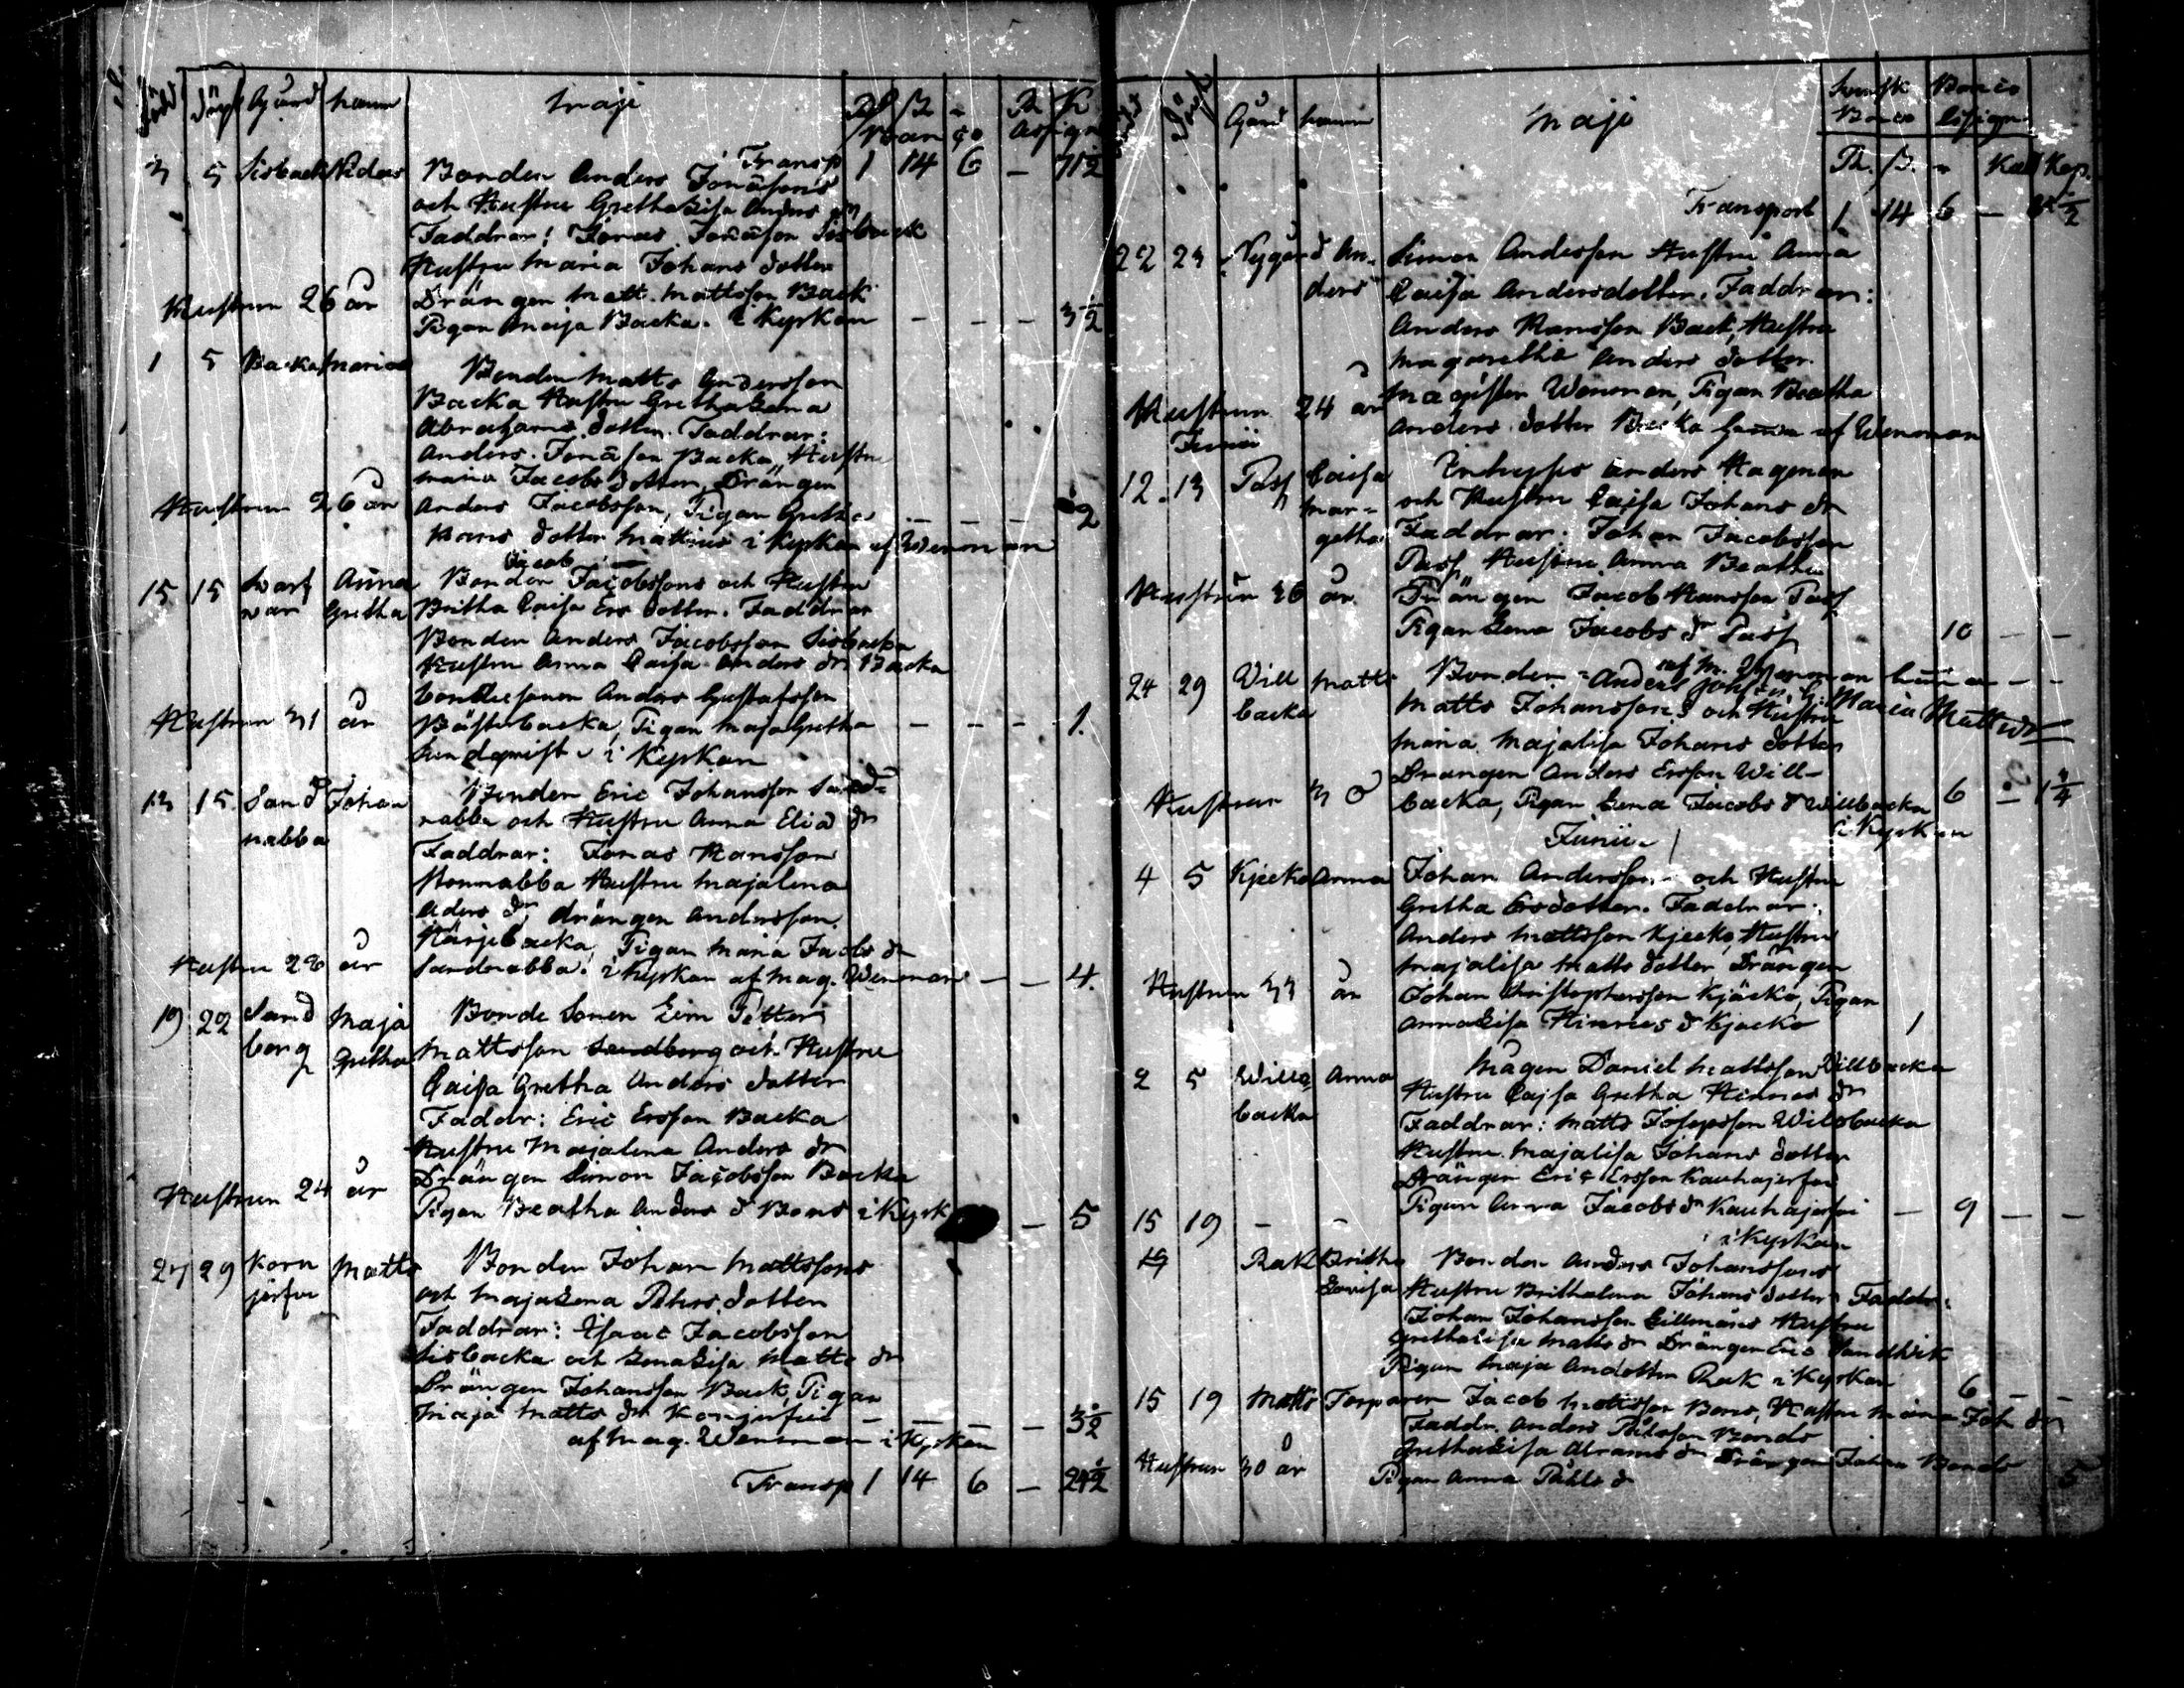 Född Döpt Gård namn Maji
Transp 1 14 6 –
3 5 Sisback Anders Bonden Anders Jonasons
och Hustru Gretha Lisa Anders dr
Faddrar: Jonas Jonason Sisback
Hustru Maria Johans dotter
Hustrun 26 år Drängen Matt. Mattsson Back
Pigan Maija Backa. i Kyrkan – – – 3 1/2
1 5 Backa Maria Bonden Matts Andersson
Backa Hustru Gretha Lena
Abrahams dotter. Faddrar:
Anders Jonason Backa, Hustru
Maria Jacobs dotter, Drängen
Hustrun 26 år Anders Jacobsson, Pigan Gretha
Hans dotter i Kyrkan af Wenman
Jacob
15 15 Swart war Anna Gretha Bonden Jacobssons och Hustru
Britha Caisa Ers dotter. Faddrar
Bonden Anders Jacobsson Sisbacka
Hustru Anna Caisa Anders dr Backa
Bondesonen Anders Gustafsson
Hustrun 31 år Bästerbacka, Pigan Maja Gretha – – – 1.
i Kyrkan
13 15 Sand nabba Johan Bonden Eric Johansson Sand-
nabba och Hustru Anna Elia dr
Faddrar: Jonas Hansson
Hustru Majalena
Aders dr, drängen Andersson
Härjebacka, Pigan Maria Jacobs dr
Hustru 28 år Sandnabba. i Kyrkan af Mag. Wenman – – 4.
19 22 Sand berg Maja Gretha Bonde Sonen Petter
Mattsson Sandberg och Hustru
Caisa Gretha Anders dotter
Faddr: Eric Ersson Backa
Hustru Majalena Anders dr
Drängen Simon Jacobsson Backa
Hustrun 24 år Pigan Beatha Anders d Bonds i Kyrk – 5
27 29 Korn jerfvi Matts Bonden Johan Mattssons
och Majalena Pehrs dotter
Faddrar: Isaac Jacobsson
Sisbacka och Lena Lisa Matts dr
Drängen Johansson Back, Pigan
Maja Matts dr – – – – 3 1/2
af Mag. Wenman i Kyrkan
Transp 1 14 6 –
Gård namn Maji Svensk Banco
Banco Assign.
Rd. ß. Kop.
Transport 1 14 6 –
22 23 Nygård An- Simon Andersson Hustru Anna
ders Caisa Andersdotter. Faddrar:
Anders Hansson Back, Hustru
Magaretha Anders dotter
Hustrun 24 år Magister Wenman, Pigan Beatha
Anders dotter Backa af Wenman
Junii
12 13 Pass Caisa Anders Hagman
Mar- och Hustru Caisa Johans dr
getha Faddrar: Johan Jacobsson
Pass, Hustru Anna Beatha
Hustrun 36 år. Drängen Jacob Hansson Pass
Pigan Lena Jacobs d Pass 10 – –
af M. Wenman
24 29 Will backa Matts Bonden Anders Johsson H. Maria Mattsdr
Matts Johanssons och Hustru
Maria Majalisa Johans dotter
Drängen Anders Ersson Will-
Hustrun 30 backa, Pigan Lena Jacobs d Willbacka 6 – 1 1/4
i Kyrkan
Junii
4 5 Kjecko Anna Johan Andersson och Hustru
Gretha Ersdotter. Faddrar:
Anders Mattsson Kjecko, Hustru
Majalisa Matts dotter, Drängen
Hustrun 33 år Johan Christophersson Kjäcko, Pigan
Anna Lisa Hinrics d Kjecko 1
2 5 Willo backa Anna Mågen Daniel Mattsson Villbacka
Hustru Cajsa Gretha Hinrics dr
Faddrar: Matts Josepsson Wilobacka
Hustru Majalisa Johans dotter
Drängen Eric Ersson Kauhajerfvi
15 19 – – Pigan Anna Jacobs dr Kauhajerfvi – 9 – –
i Kyrkan
19 Rak Britha Bonden Anders Johanssons
Lovisa Hustru Brithalena Johans dotter Faddr:
Johan Johansson Lillmåns Hustru
Grethalisa Matts dr Drängen Eric Sandkvik
Pigan Maja Andotter Rak i Kyrkan 6 – –
15 19 Matts Torparen Jacob Mattsson Bonds, Hustru Maria Joh dr
Faddr. Anders Pålsson Bonds
Gretha Lisa Abrams dr Drängen Johan Bonds
Hustrun 30 år Pigan Anna Påhls d 5